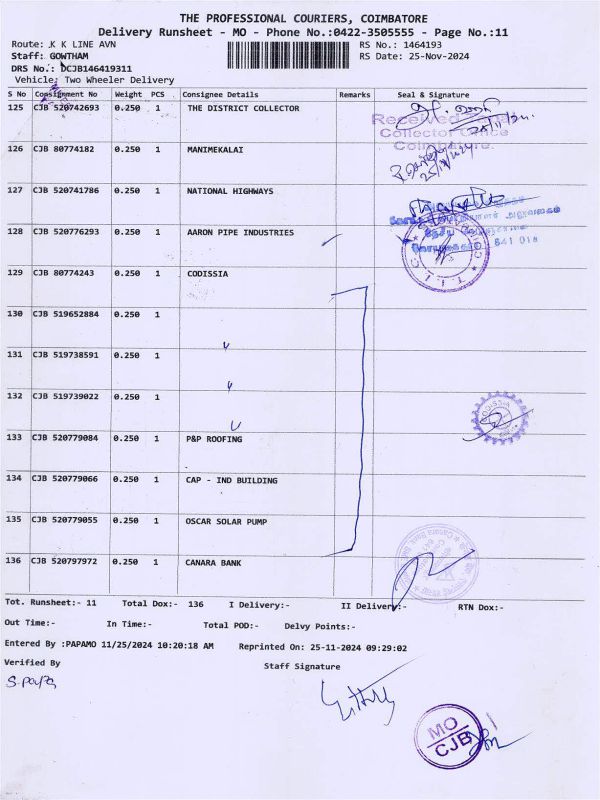 THE PROFESSIONAL COURIERS, COIMBATORE
Delivery Runsheet - MO - Phone No.:0422-3505555 - Page No.:11
Route: .K K LINE AVN
RS No.: 1464193
Staff: GOWTHAM
RS Date: 25-Nov-2024
DRS No.: DCJB146419311
Vehicle: Two Wheeler Delivery
S No Consignment No Weight PCS Consignee Details Remarks Seal & Signature
125 CJB 520742693 0.250 1 THE DISTRICT COLLECTOR
Received
Collector Office
Coimbatore.
126 CJB 80774182 0.250 1 MANIMEKALAI
25/11/2024
127 CJB 520741786 0.250 1 NATIONAL HIGHWAYS
641 018
128 CJB 520776293 0.250 1 AARON PIPE INDUSTRIES
129 CJB 80774243 0.250 1 CODISSIA
130 CJB 519652884 0.250 1
131 CJB 519738591 0.250 1
132 CJB 519739022 0.250 1
133 CJB 520779084 0.250 1 P&P ROOFING
134 CJB 520779066 0.250 1 CAP - IND BUILDING
135 CJB 520779055 0.250 1 OSCAR SOLAR PUMP
136 CJB 520797972 0.250 1 CANARA BANK
Tot. Runsheet:- 11 Total Dox:- 136 I Delivery:- II Delivery:- RTN Dox:-
Out Time:- In Time:- Total POD:- Delvy Points:-
Entered By :PAPAMO 11/25/2024 10:20:18 AM Reprinted On: 25-11-2024 09:29:02
Verified By
Staff Signature
S.papa
MO
CJB